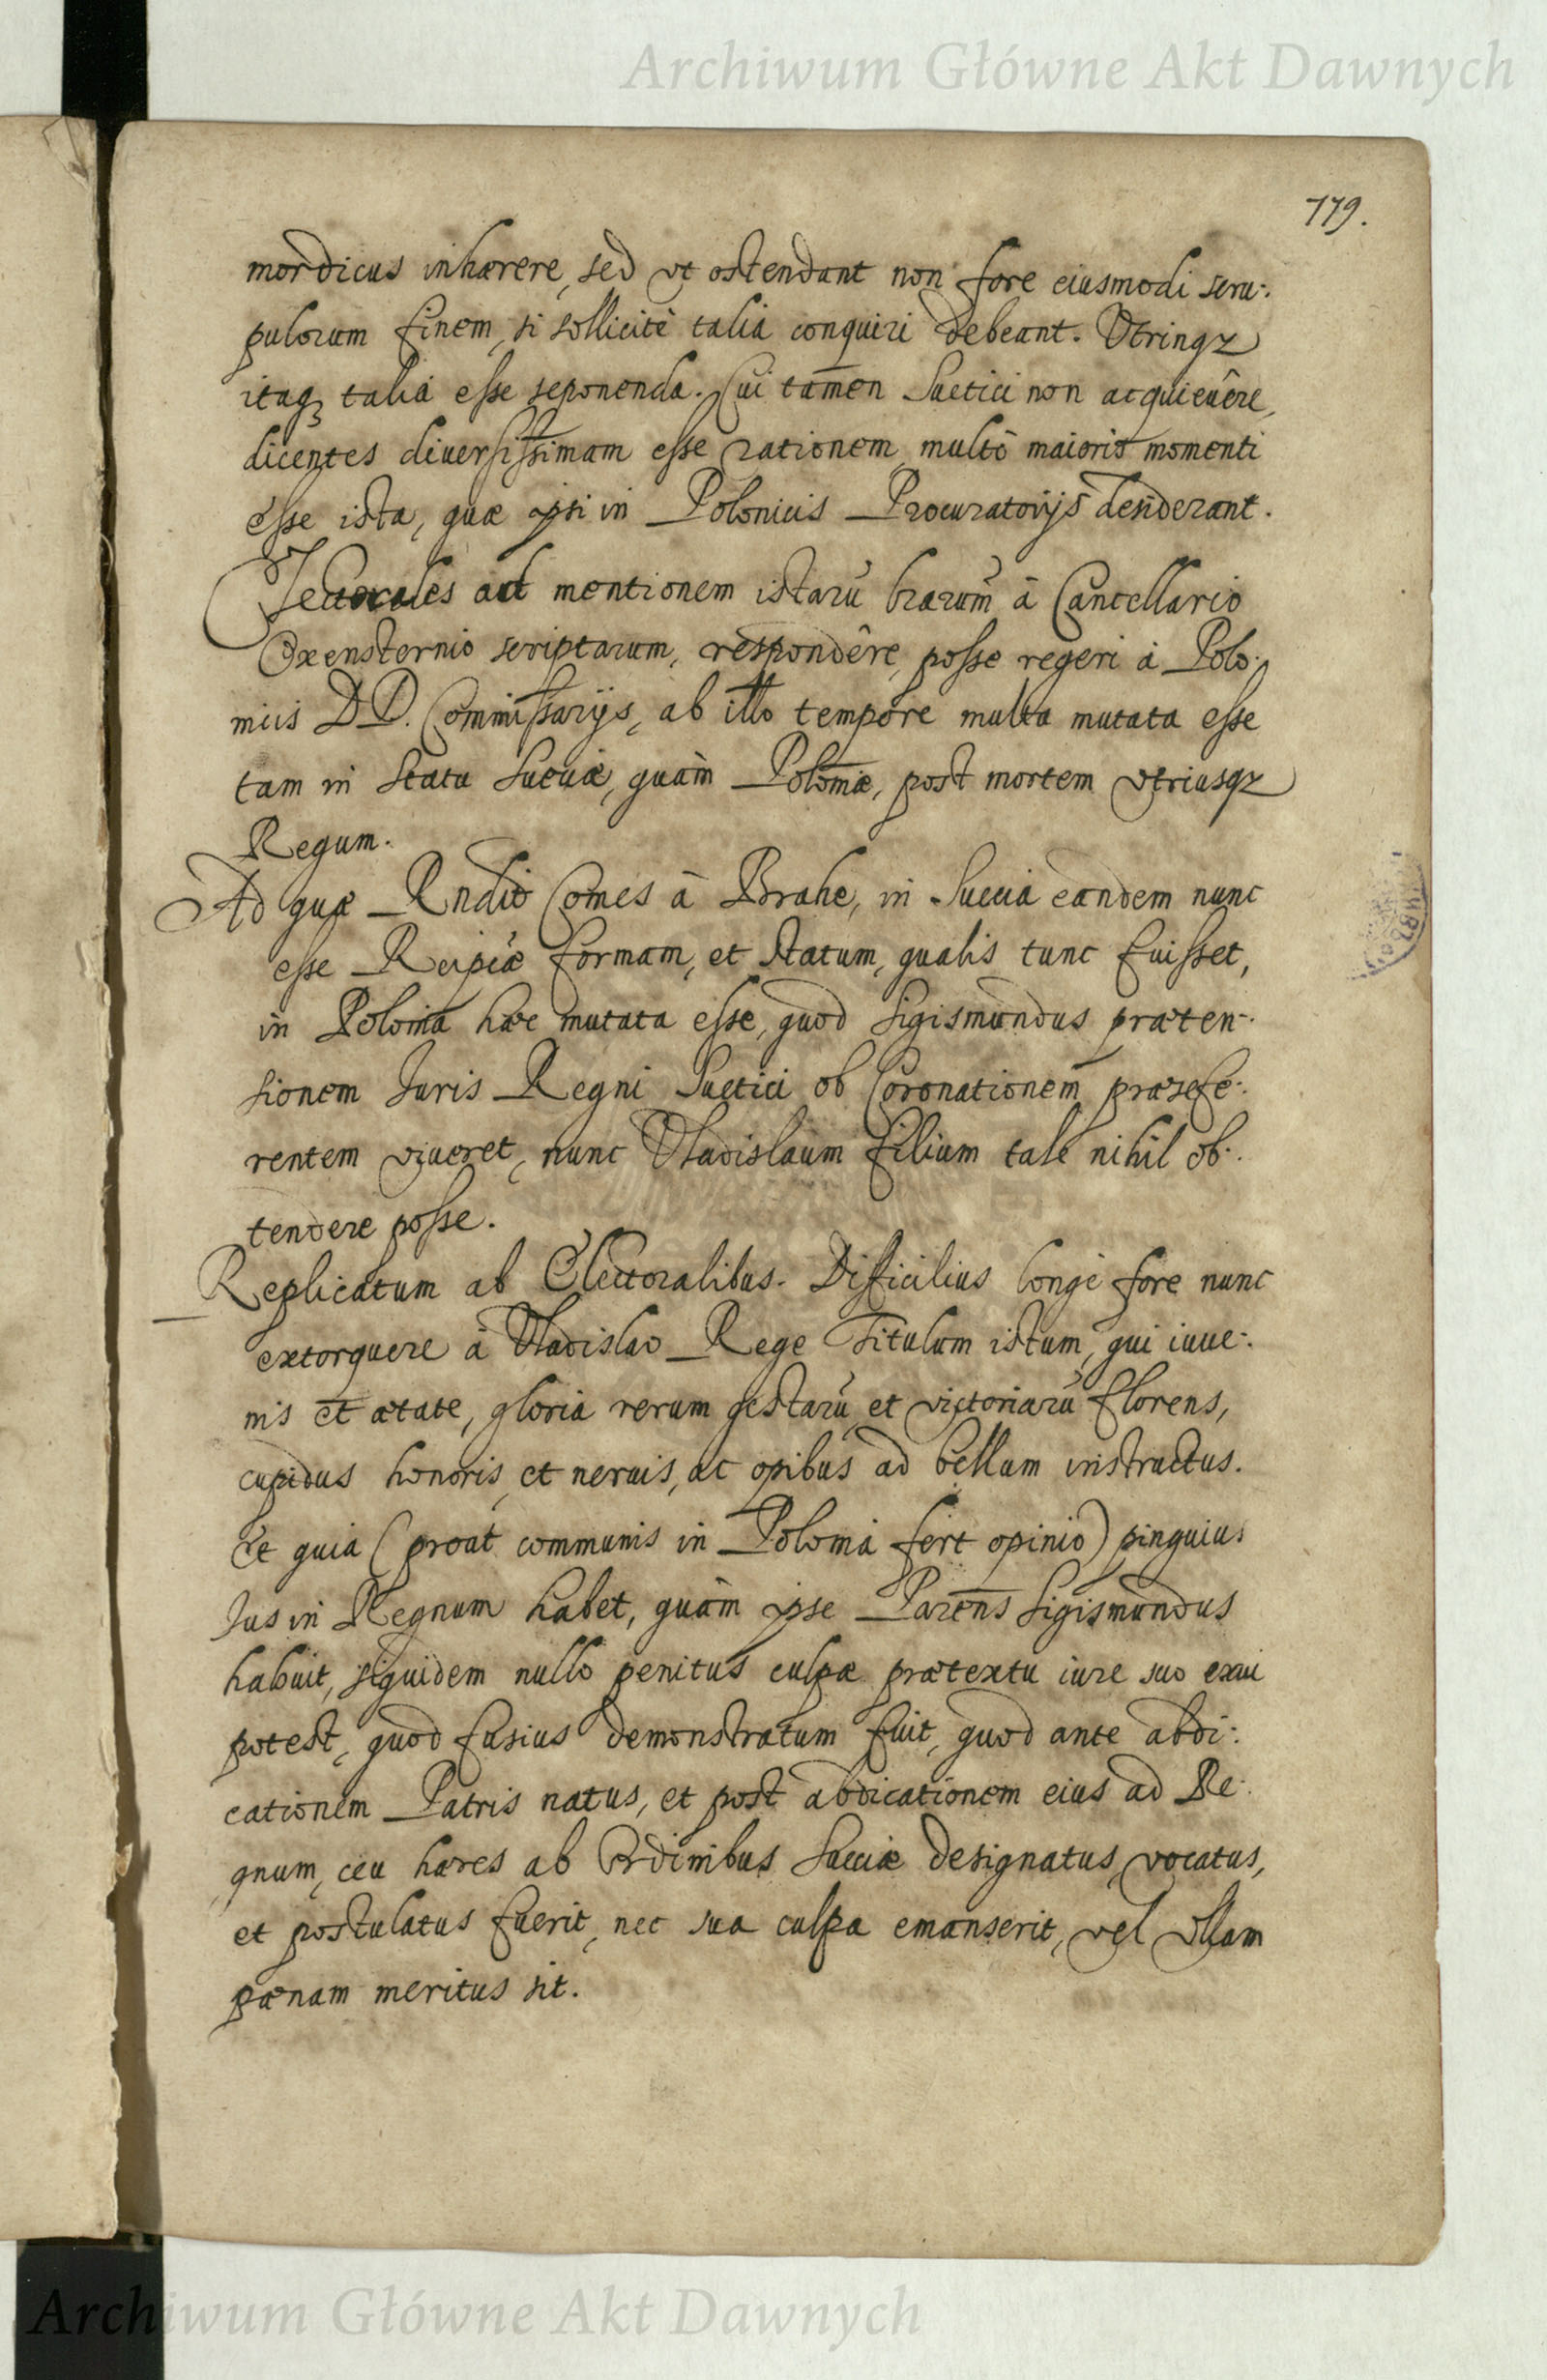 Archiwum Główne Akt Dawnych
779.
mordicus inhærere, sed vt ostendant non fore eiusmodi scru-:
pulorum finem, si sollicitè talia conquiri debeant. Vtrinqz
itaqz talia esse seponenda. Cui tamen Suetici non acquieuêre,
dicentes diuersissimam esse rationem, multò maioris momenti
esse ista, quæ ipsi in Polonicis Procuratorijs desiderant.
ad mentionem istarū lrarum à Cancellario
Oxensternio scriptarum, respondêre, posse regeri à Polo-
nicis DD. Commissarijs, ab illo tempore multa mutata esse
tam in Statu Sueciæ, quàm Poloniæ, post mortem vtriusqz
Regum.
Ad quæ Rndit Comes à Brahe, in Suecia eandem nunc
esse Reipcæ formam, et Statum, qualis tunc fuisset,
in Polonia hæc mutata esse, quod Sigismundus præten-:
sionem Juris Regni Suetici ob Coronationem præsefe-:
rentem viueret, nunc Vladislaum filium tale nihil ob-:
tendere posse.
Replicatum ab Electoralibus. Difficilius longè fore nunc
extorquere à Vladislao Rege Titulum istum, qui iuue-:
nis et ætate, gloria rerum gestarū, et victoriarū florens,
cupidus honoris, et neruis, ac opibus ad bellum instructus.
Et quia (prout communis in Polonia fert opinio) pinguius
Jus in Regnum habet, quàm ipse Parens Sigismundus
habuit, siquidem nullo penitus culpæ prætextu iure suo exui
potest, quod fusius demonstratum fuit, quod ante abdi-:
cationem Patris natus, et post abdicationem eius ad Re-:
gnum, ceu hæres ab Ordinibus Sueciæ designatus, vocatus,
et postulatus fuerit, nec sua culpa emanserit, vel vllam
pænam meritus sit.
Archiwum Główne Akt Dawnych